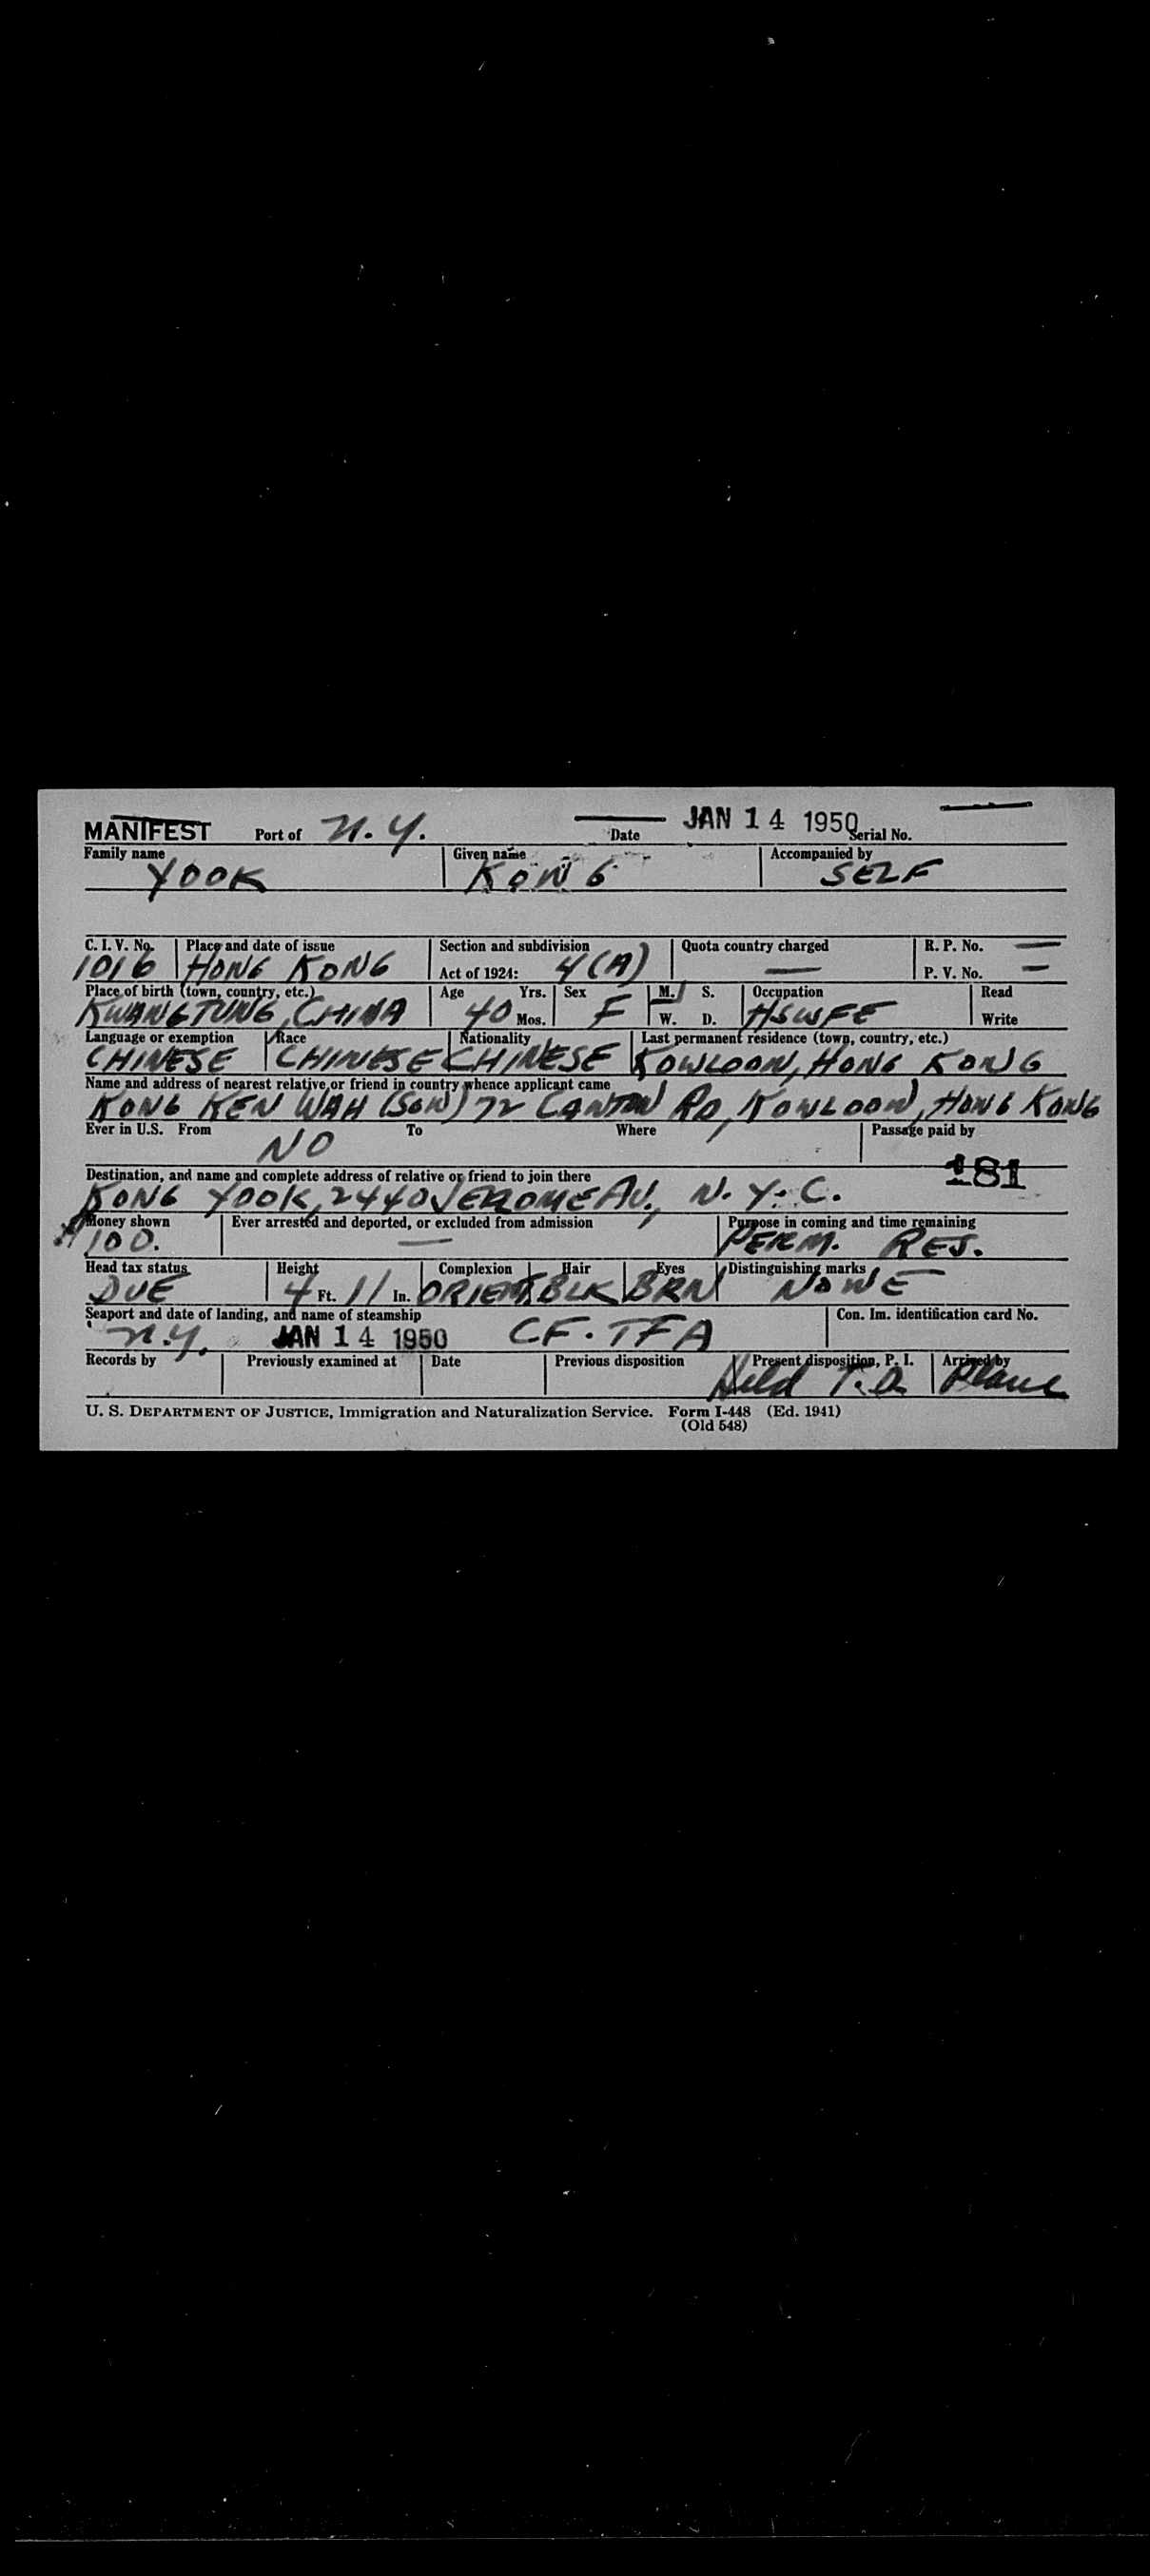 MANIFEST Port of N.Y. Date JAN 14 1950 Serial No.
Family name Given name Accompanied by
YOOK KONG SELF
C. I. V. No. Place and date of issue Section and subdivision Quota country charged R. P. No. —
1016 HONG KONG Act of 1924: 4(A) — P. V. No. —
Place of birth (town, country, etc.) Age Yrs. Sex M. S. Occupation Read
KWANGTUNG, CHINA 40 Mos. F W. D. HSWFE Write
Language or exemption Race Nationality Last permanent residence (town, country, etc.)
CHINESE CHINESE CHINESE KOWLOON, HONG KONG
Name and address of nearest relative or friend in country whence applicant came
KONG KEN WAH (SON) 72 CANTON RD, KOWLOON, HONG KONG
Ever in U.S. From To Where Passage paid by
NO
Destination, and name and complete address of relative or friend to join there 181
KONG YOOK, 2440 JEROME AV., N.Y.C.
Money shown Ever arrested and deported, or excluded from admission Purpose in coming and time remaining
$100. — PERM. RES.
Head tax status Height Complexion Hair Eyes Distinguishing marks
DUE 4 Ft. 11 In. ORIENT. BLK BRN NONE
Seaport and date of landing, and name of steamship Con. Im. identification card No.
N.Y. JAN 14 1950 CF-TFA
Records by Previously examined at Date Previous disposition Present disposition, P. I. Arrived by
Held T.D. Plane
U. S. DEPARTMENT OF JUSTICE, Immigration and Naturalization Service. Form I-448 (Ed. 1941)
(Old 548)